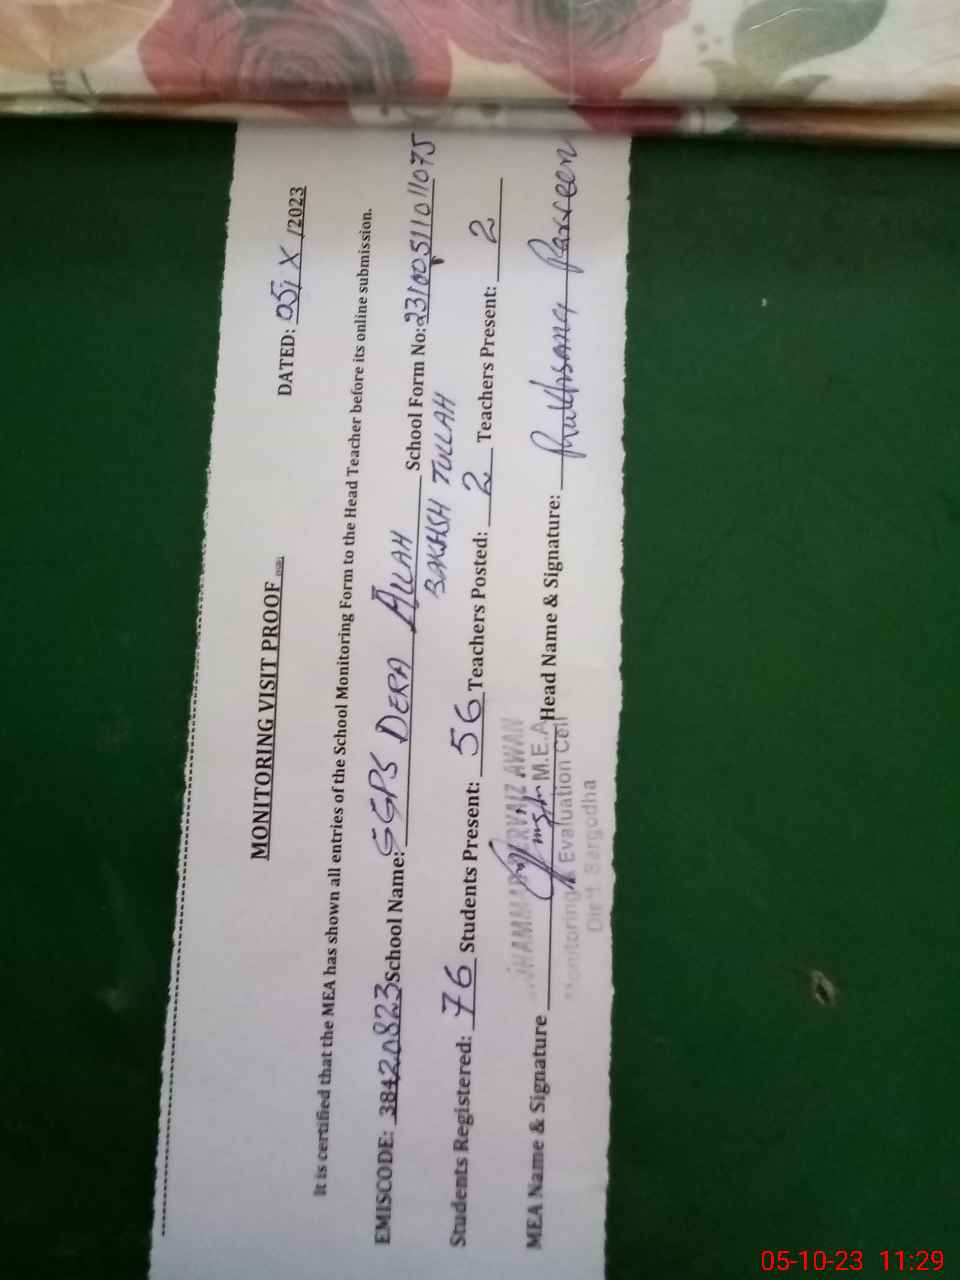 MONITORING VISIT PROOF
DATED: 05/X/2023
It is certified that the MEA has shown all entries of the School Monitoring Form to the Head Teacher before its online submission.
EMISCODE: 38420823 School Name: GGPS DERA ALLAH School Form No: 23100511011075
BAKHSH TULLAH
Students Registered: 76 Students Present: 56 Teachers Posted: 2 Teachers Present: 2
MEA Name & Signature Head Name & Signature: Rukhsana Parveen
PERVAIZ AWAN
M.E.A
Monitoring & Evaluation Cell
Distt. Sargodha
05-10-23 11:29